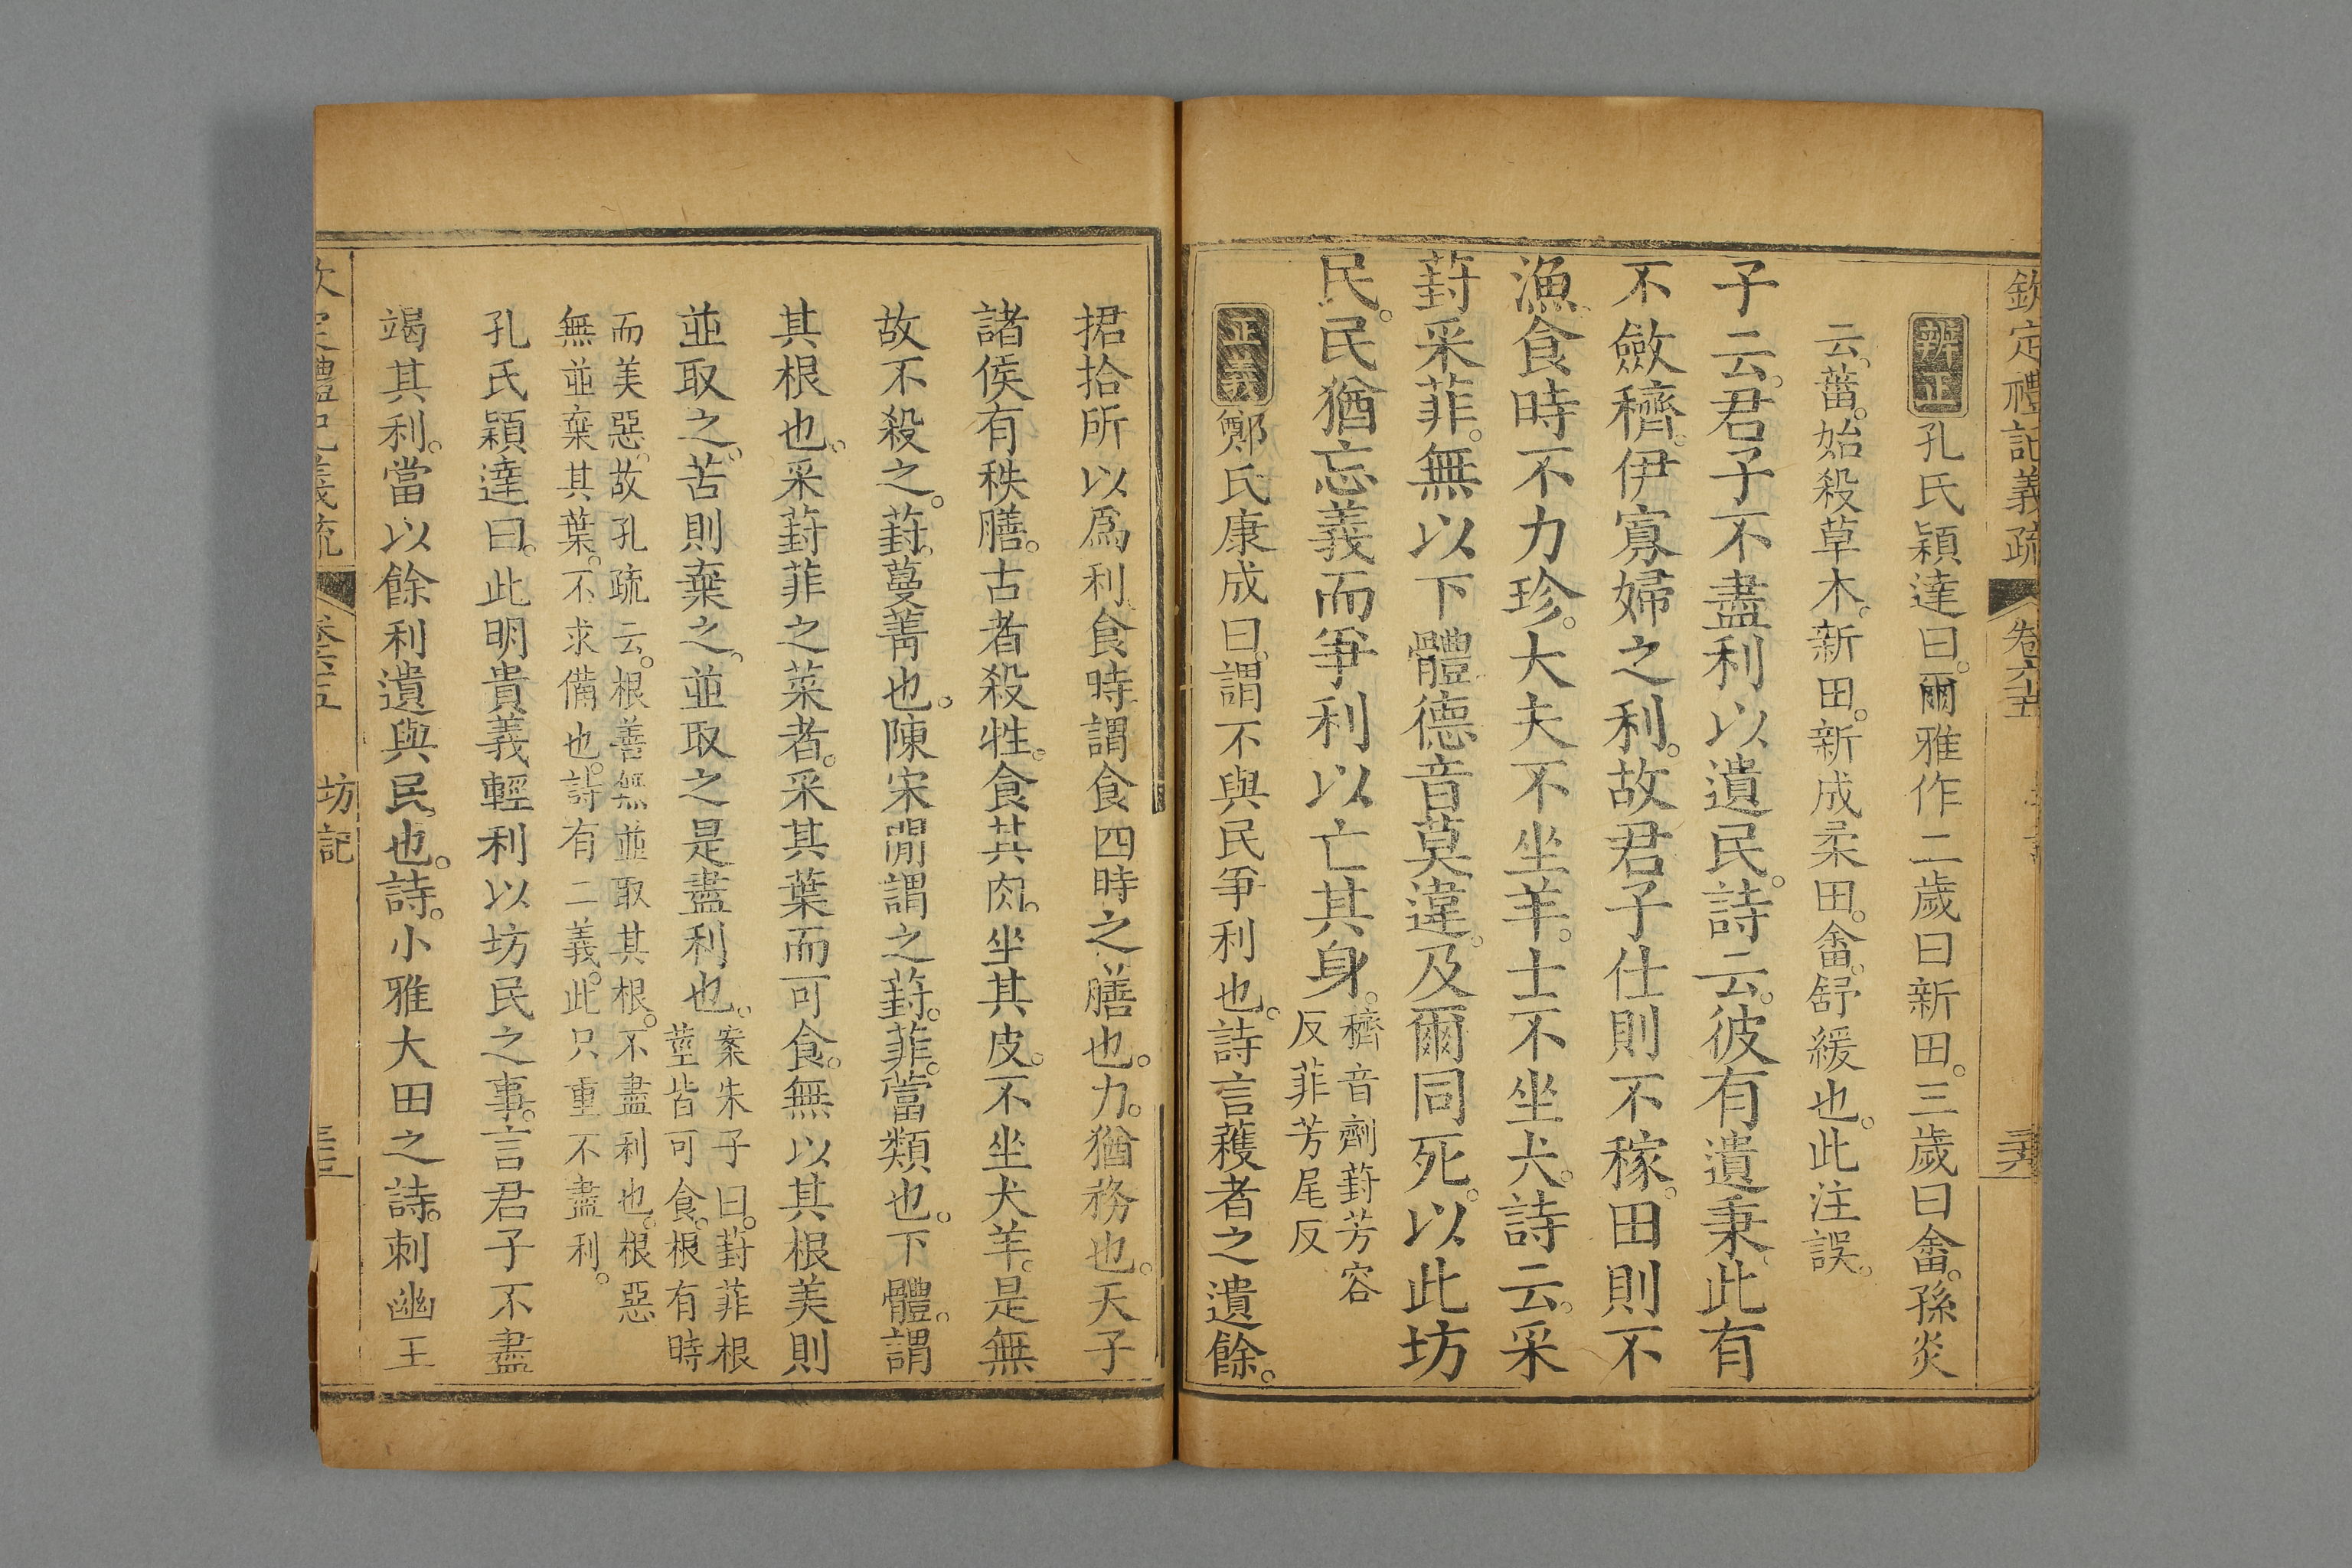 欽定禮記義疏
卷六十五
辨正孔氏穎達曰。爾雅作二歲曰新田。三歲曰畬。孫炎
云。菑。始殺草木。新田。新成柔田。畬。舒緩也。此注誤。
子云。君子不盡利以遺民。詩云。彼有遺秉。此有
不斂穧。伊寡婦之利。故君子仕則不稼。田則不
漁。食時不力珍。大夫不坐羊。士不坐犬。詩云。采
葑采菲。無以下體。德音莫違。及爾同死。以此坊
民。民猶忘義而爭利以亡其身。
穧音劑葑芳容
反菲芳尾反
正義鄭氏康成曰。謂不與民爭利也。詩言穫者之遺餘。
捃拾所以爲利。食時謂食四時之膳也。力。猶務也。天子
諸侯有秩膳。古者殺牲。食其肉。坐其皮。不坐犬羊。是無
故不殺之。葑。蔓菁也。陳宋閒謂之葑。菲。䔰類也。下體。謂
其根也。采葑菲之菜者。采其葉而可食。無以其根美則
並取之。苦則棄之。並取之是盡利也。
案朱子曰。葑菲根
莖皆可食。根有時
而美惡。故孔疏云。根善無並取其根。不盡利也。根惡
無並棄其葉。不求備也。詩有二義。此只重不盡利。
孔氏穎達曰。此明貴義輕利以坊民之事。言君子不盡
竭其利。當以餘利遺與民也。詩。小雅大田之詩。刺幽王
坊記